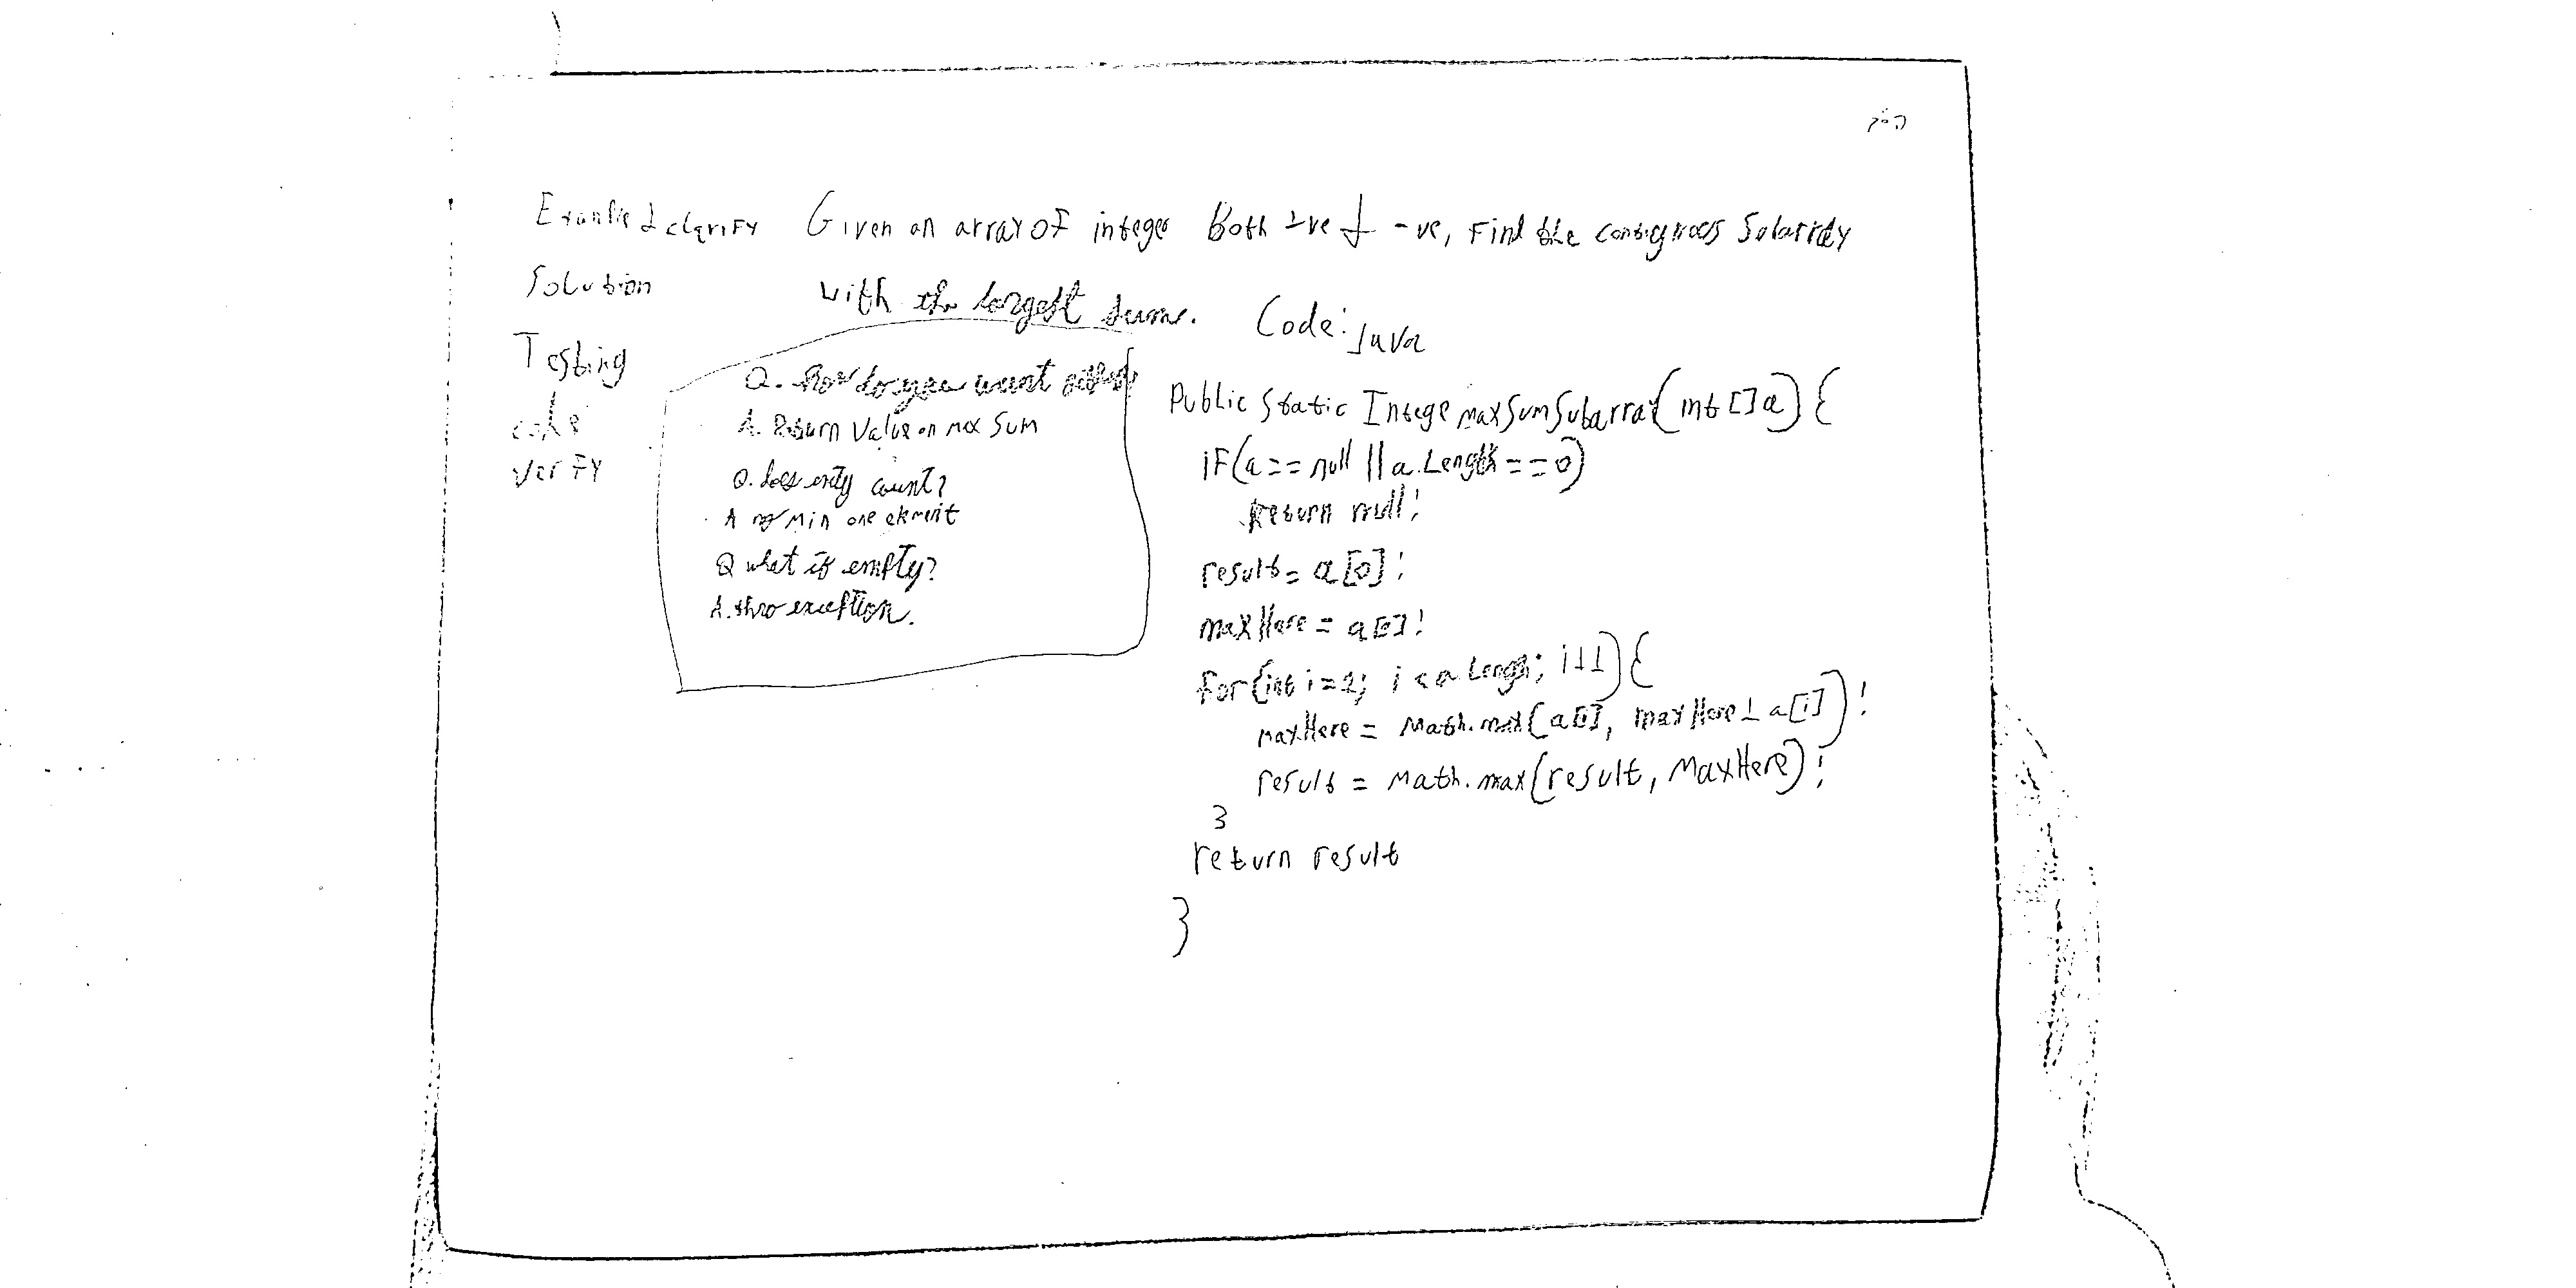 Example & clarify
Solution
Testing
code
verify
Given an array of integer Both +ve & -ve, Find the contiguous Subarray
with the largest sum.
Q. How do you want
A. Return Value on max Sum
Q. does empty count?
A no Min one element
Q what if empty?
A. thro exception.
Code: Java
Public Static Intege maxSumSubarray(int []a) {
iF(a == null || a.Length == 0)
Return null;
result = a[0];
maxHere = a[0];
for(int i = 1; i < a.Length; i++) {
maxHere = Math.max(a[i], maxHere + a[i]);
result = Math.max(result, MaxHere);
}
return result
}